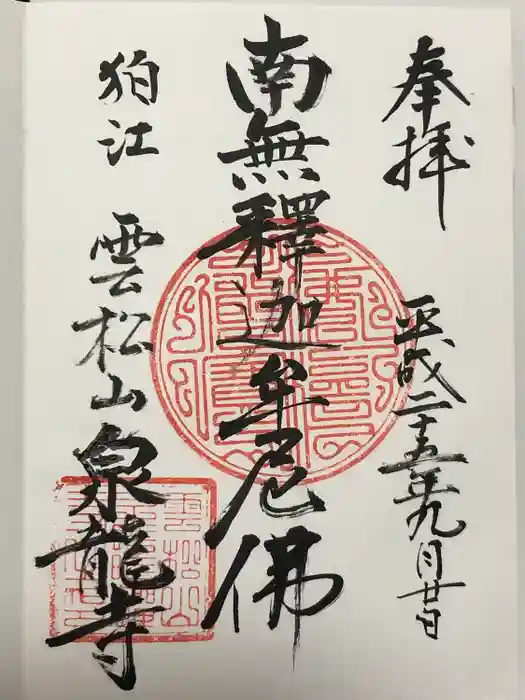 奉拝
平成二十五年九月廿日
南無釋迦牟尼佛
狛江 雲松山 泉龍寺